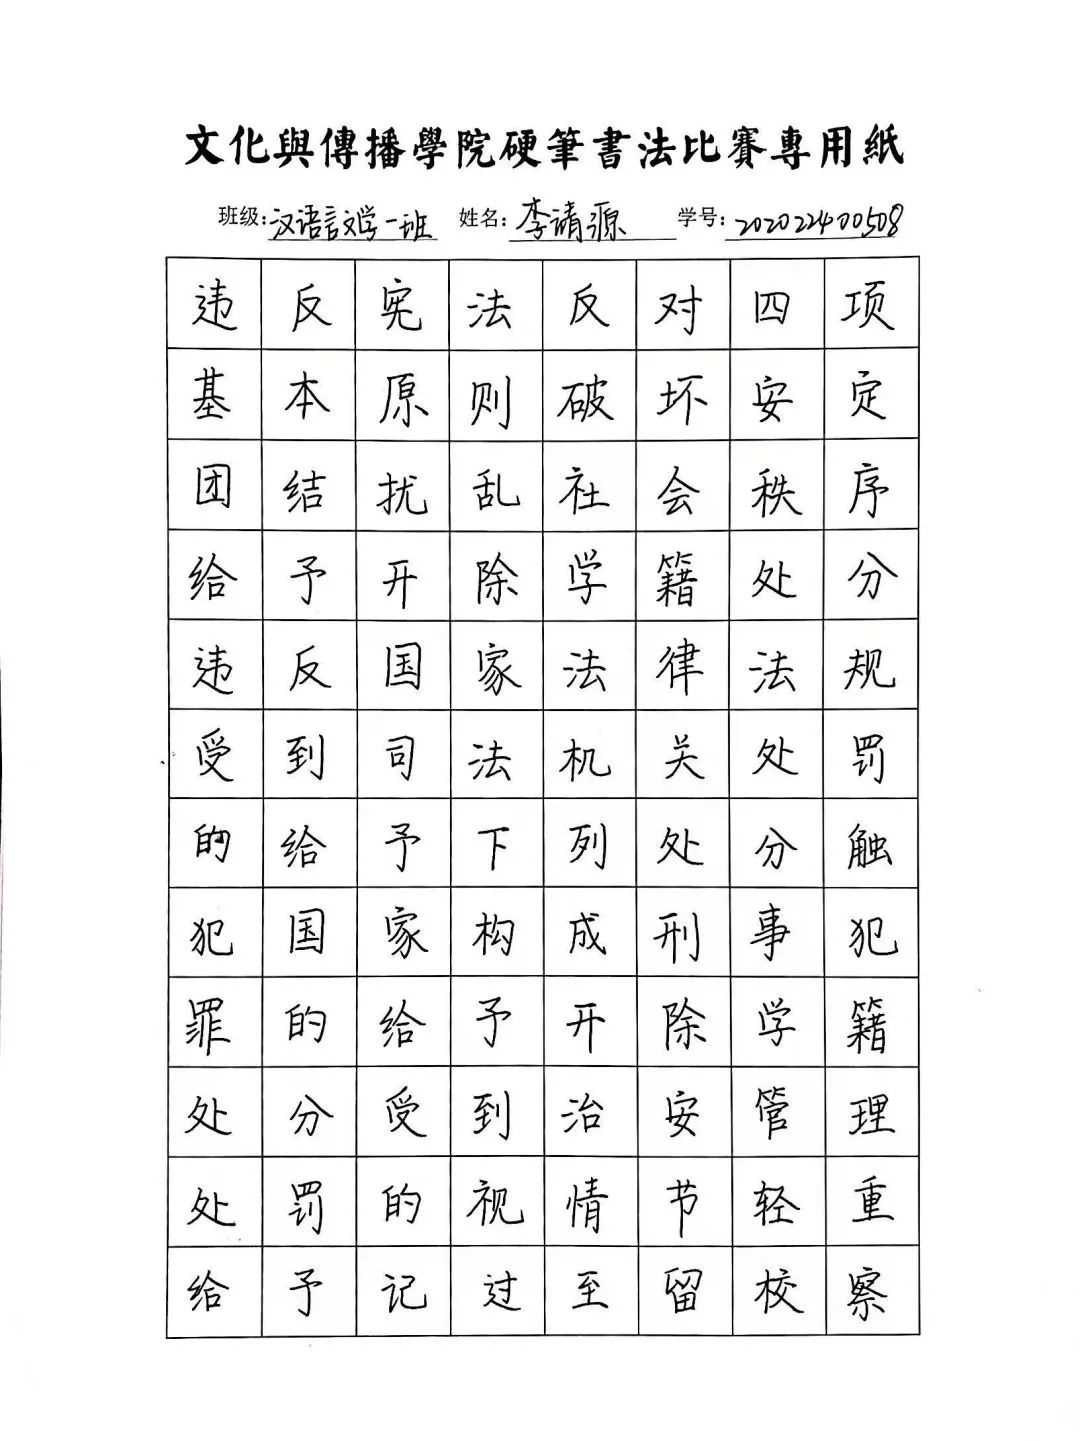 文化與傳播學院硬筆書法比賽專用紙
班级:汉语言文学一班 姓名:李清源 学号:202022400508
违反宪法反对四项
基本原则破坏安定
团结扰乱社会秩序
给予开除学籍处分
违反国家法律法规
受到司法机关处罚
的给予下列处分触
犯国家构成刑事犯
罪的给予开除学籍
处分受到治安管理
处罚的视情节轻重
给予记过至留校察